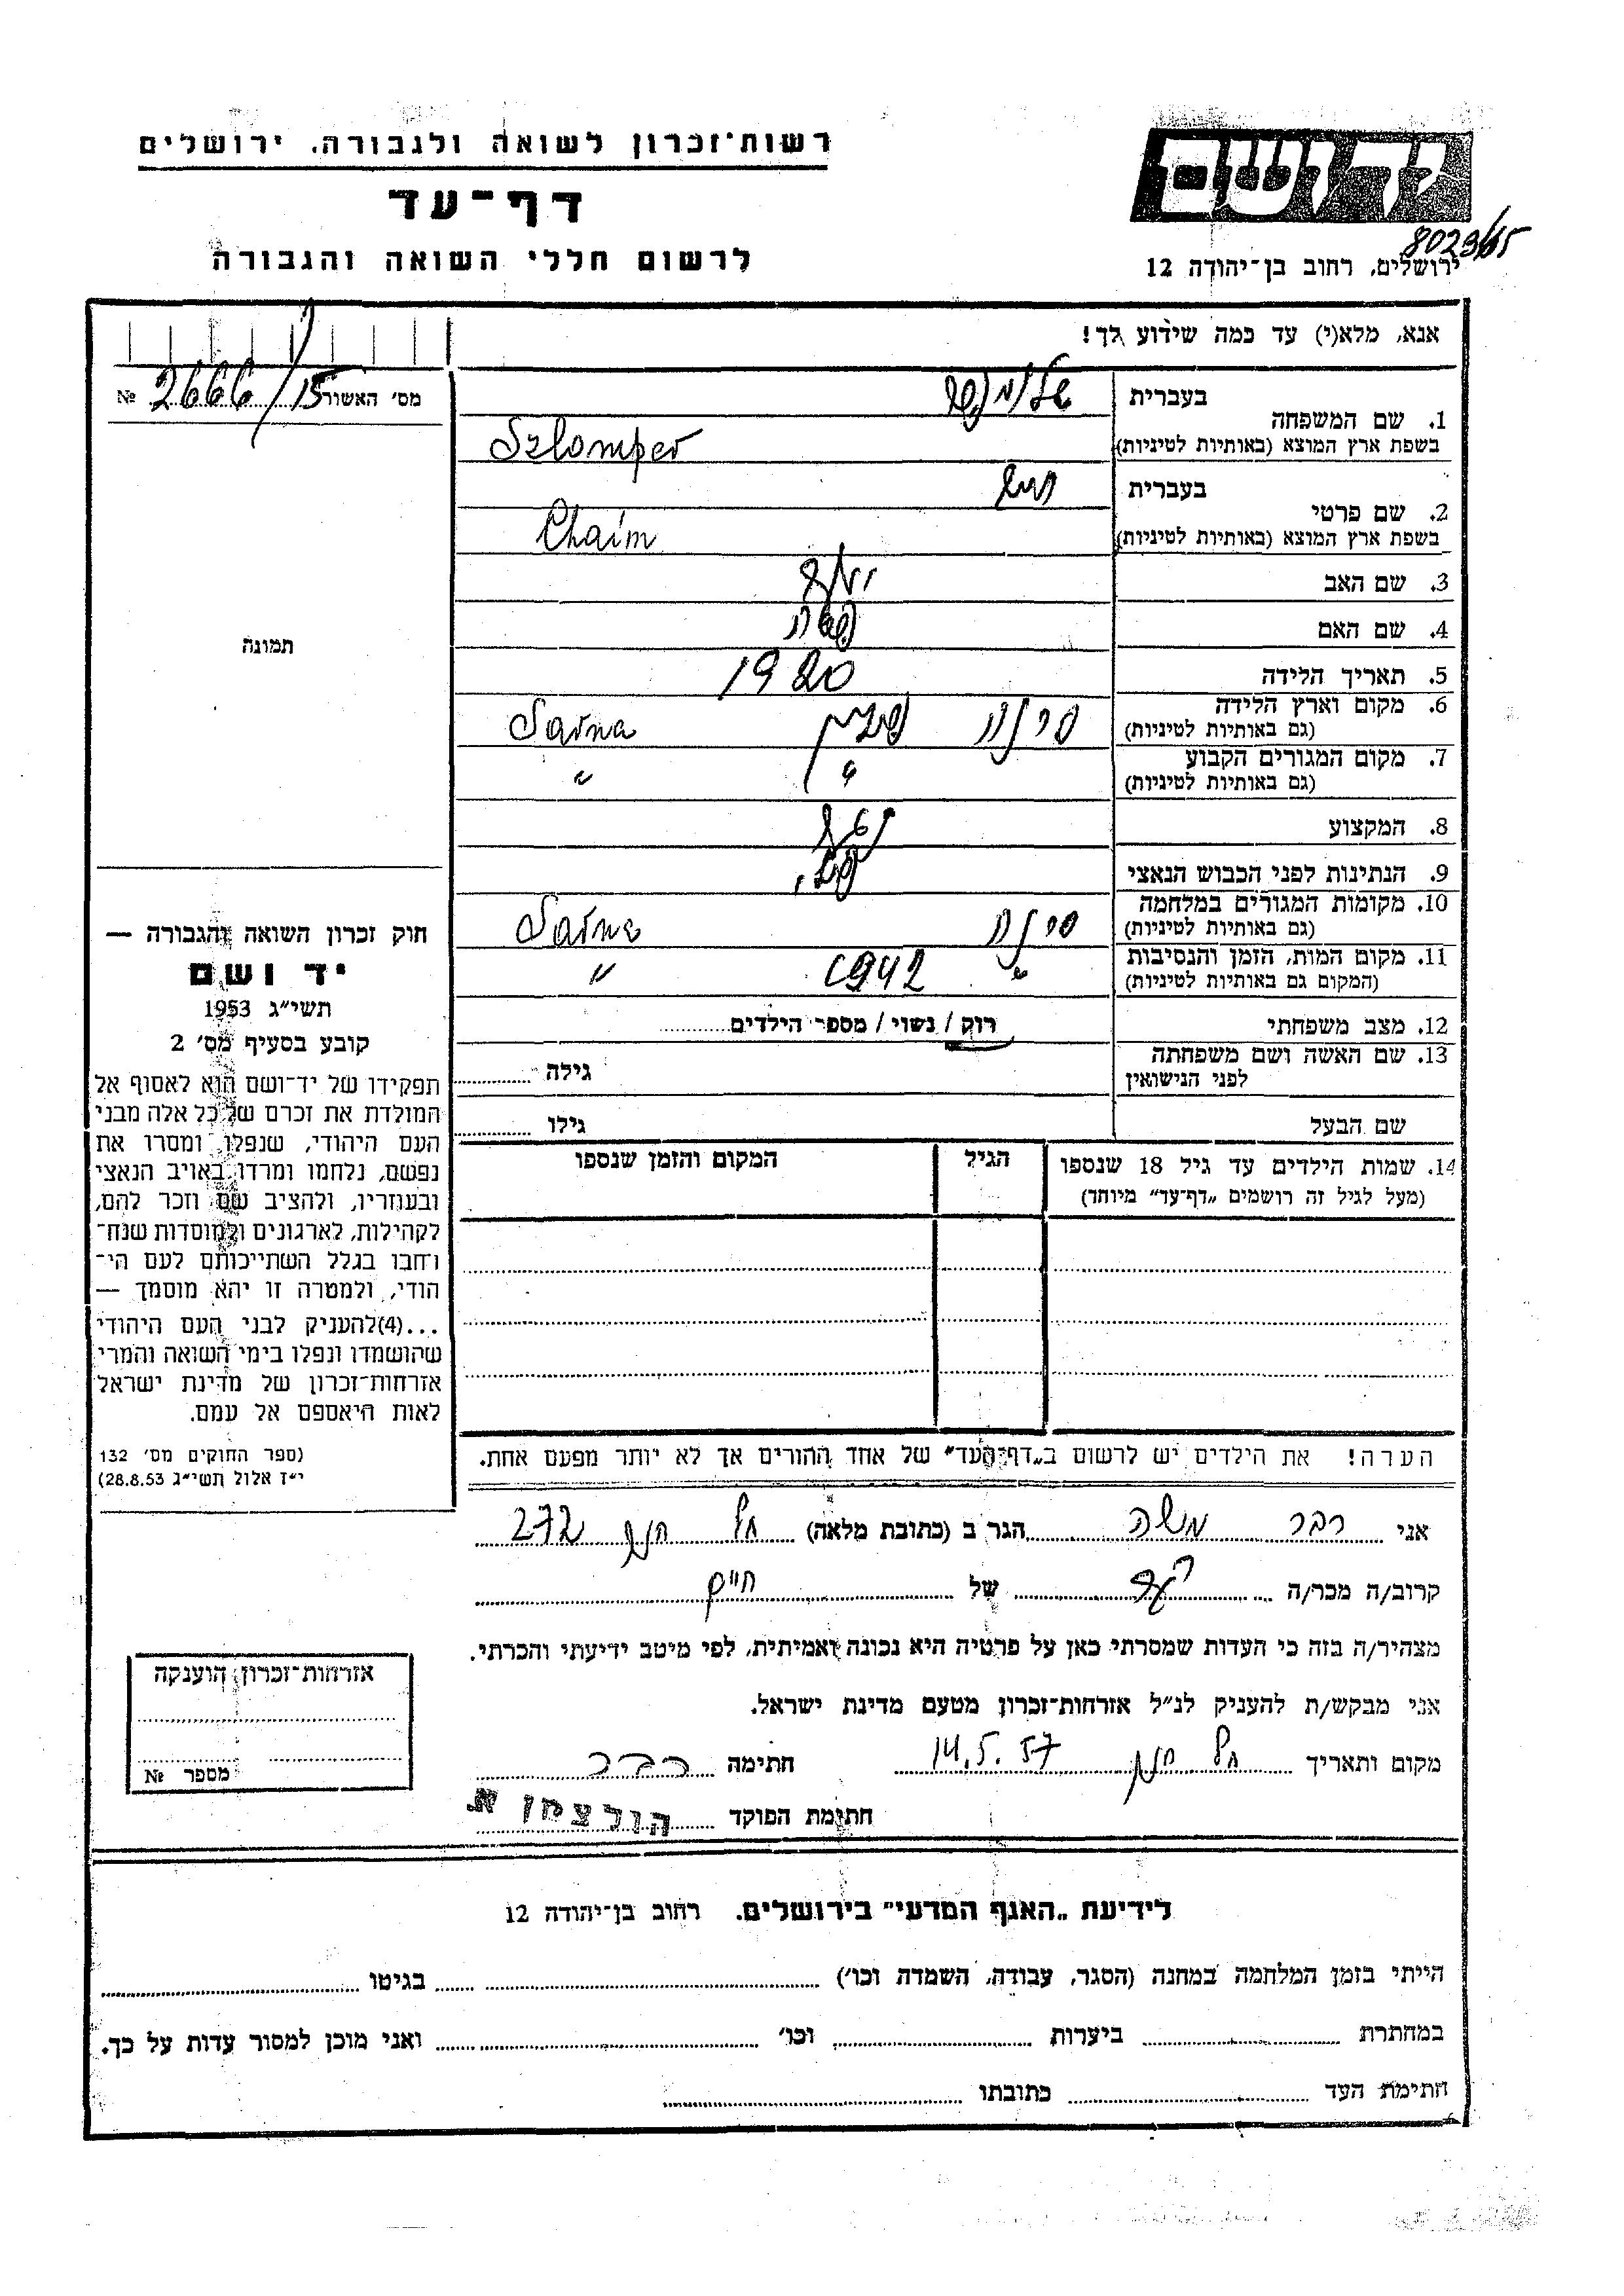 רשות־זכרון לשואה ולגבורה. ירושלים
דף־עד
לרשום חללי השואה והגבורה
יד ושם
8023/65
ירושלים, רחוב בן־יהודה 12
אנא, מלא(י) עד כמה שידוע לך!
מס׳ האשור 2666/15 №
תמונה
בעברית
1. שם המשפחה
בשפת ארץ המוצא (באותיות לטיניות) Szlomper
בעברית
2. שם פרטי
בשפת ארץ המוצא (באותיות לטיניות) Chaim
3. שם האב
4. שם האם
5. תאריך הלידה 1920
6. מקום וארץ הלידה
(גם באותיות לטיניות) Sarna
7. מקום המגורים הקבוע
(גם באותיות לטיניות) " "
8. המקצוע
9. הנתינות לפני הכבוש הנאצי
10. מקומות המגורים במלחמה
(גם באותיות לטיניות) Sarna
11. מקום המות, הזמן והנסיבות
(המקום גם באותיות לטיניות) " 1942 "
12. מצב משפחתי רוק / נשוי / מספר הילדים
13. שם האשה ושם משפחתה
לפני הנישואין
גילה
שם הבעל גילו
14. שמות הילדים עד גיל 18 שנספו
(מעל לגיל זה רושמים „דף־עד״ מיוחד)
הגיל
המקום והזמן שנספו
חוק זכרון השואה והגבורה —
יד ושם
תשי״ג 1953
קובע בסעיף מס׳ 2
תפקידו של יד־ושם הוא לאסוף אל
המולדת את זכרם של כל אלה מבני
העם היהודי, שנפלו, ומסרו את
נפשם, נלחמו ומרדו באויב הנאצי
ובעוזריו, ולהציב שם וזכר להם,
לקהילות, לארגונים ולמוסדות שנח־
רחבו בגלל השתייכותם לעם הי־
הודי, ולמטרה זו יהא מוסמך —
...(4)להעניק לבני העם היהודי
שהושמדו ונפלו בימי השואה והמרי
אזרחות־זכרון של מדינת ישראל
לאות היאספם אל עמם.
(ספר החוקים מס׳ 132
י״ז אלול תשי״ג 28.8.53)
הערה! את הילדים יש לרשום ב„דף־העד״ של אחד ההורים אך לא יותר מפעם אחת.
אני רבר משה הגר ב (כתובת מלאה) תל חנן 272
קרוב/ה מכר/ה של חיים
מצהיר/ה בזה כי העדות שמסרתי כאן על פרטיה היא נכונה ואמיתית, לפי מיטב ידיעתי והכרתי.
אני מבקש/ת להעניק לנ״ל אזרחות־זכרון מטעם מדינת ישראל.
מקום ותאריך תל חנן 14.5.57 חתימה רבר
חתימת הפוקד הולצמן א.
אזרחות־זכרון הוענקה
מספר №
לידיעת „האגף המדעי״ בירושלים. רחוב בן־יהודה 12
הייתי בזמן המלחמה במחנה (הסגר, עבודה, השמדה וכו׳) בגיטו
במחתרת ביערות וכו׳ ואני מוכן למסור עדות על כך.
חתימת העד כתובתו